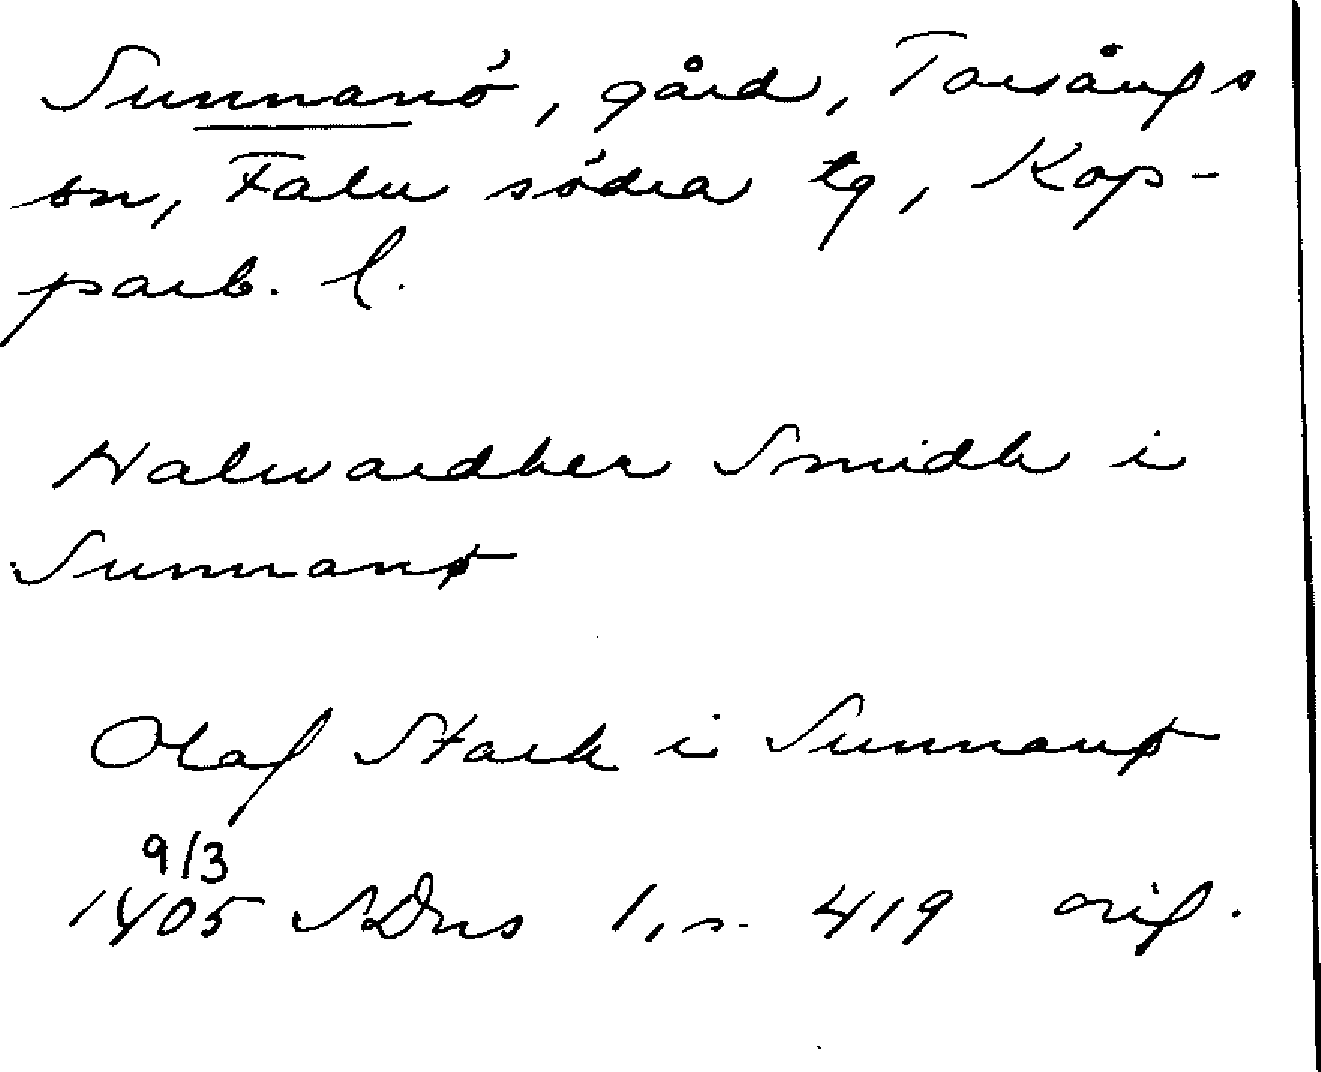 Sunnanö, gård, Torsångs
sn, Falu södra tg, Kop-
parb. l.
Halwardher Smidh i
Sunnanø
Olaf Stark i Sunnanø
9/3
1405 SDns 1, s. 419 orig.